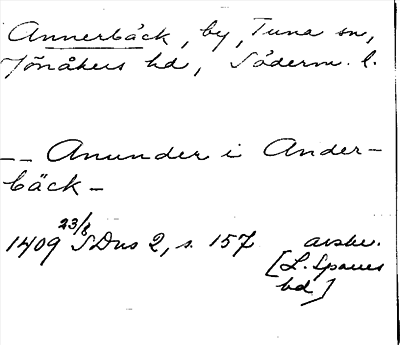 Annerbäck, by, Tuna sn,
Jönåkers hd, Söderm. l.
-- Anunder i Ander-
bäck -
1409 23/8 SDns 2, s. 157 avskr.
[L. Sparres
hd]